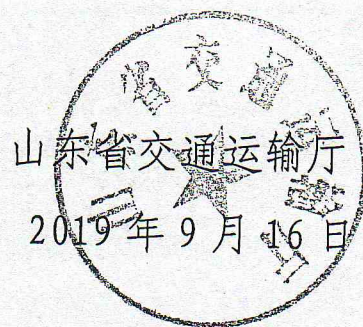 山东省交通运输厅
2019年9月16日